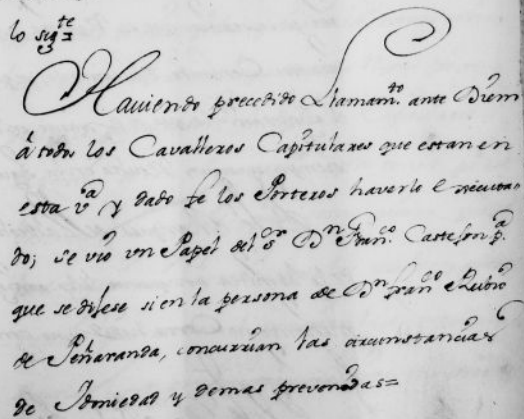 lo sigte=
Haviendo precedido Llamamto. ante Diem
á todos los Cavalleros Capitulares que estan en
esta va y dado fe los Porteros haverlo executa-
do; se vió un Papel del Sor Dn Franco. Castejon pa.
que se dijese si en la persona de Dn Franco Rubio
de Peñaranda, concurrian las circunstancias
de Idoniedad y demas prevenidas=